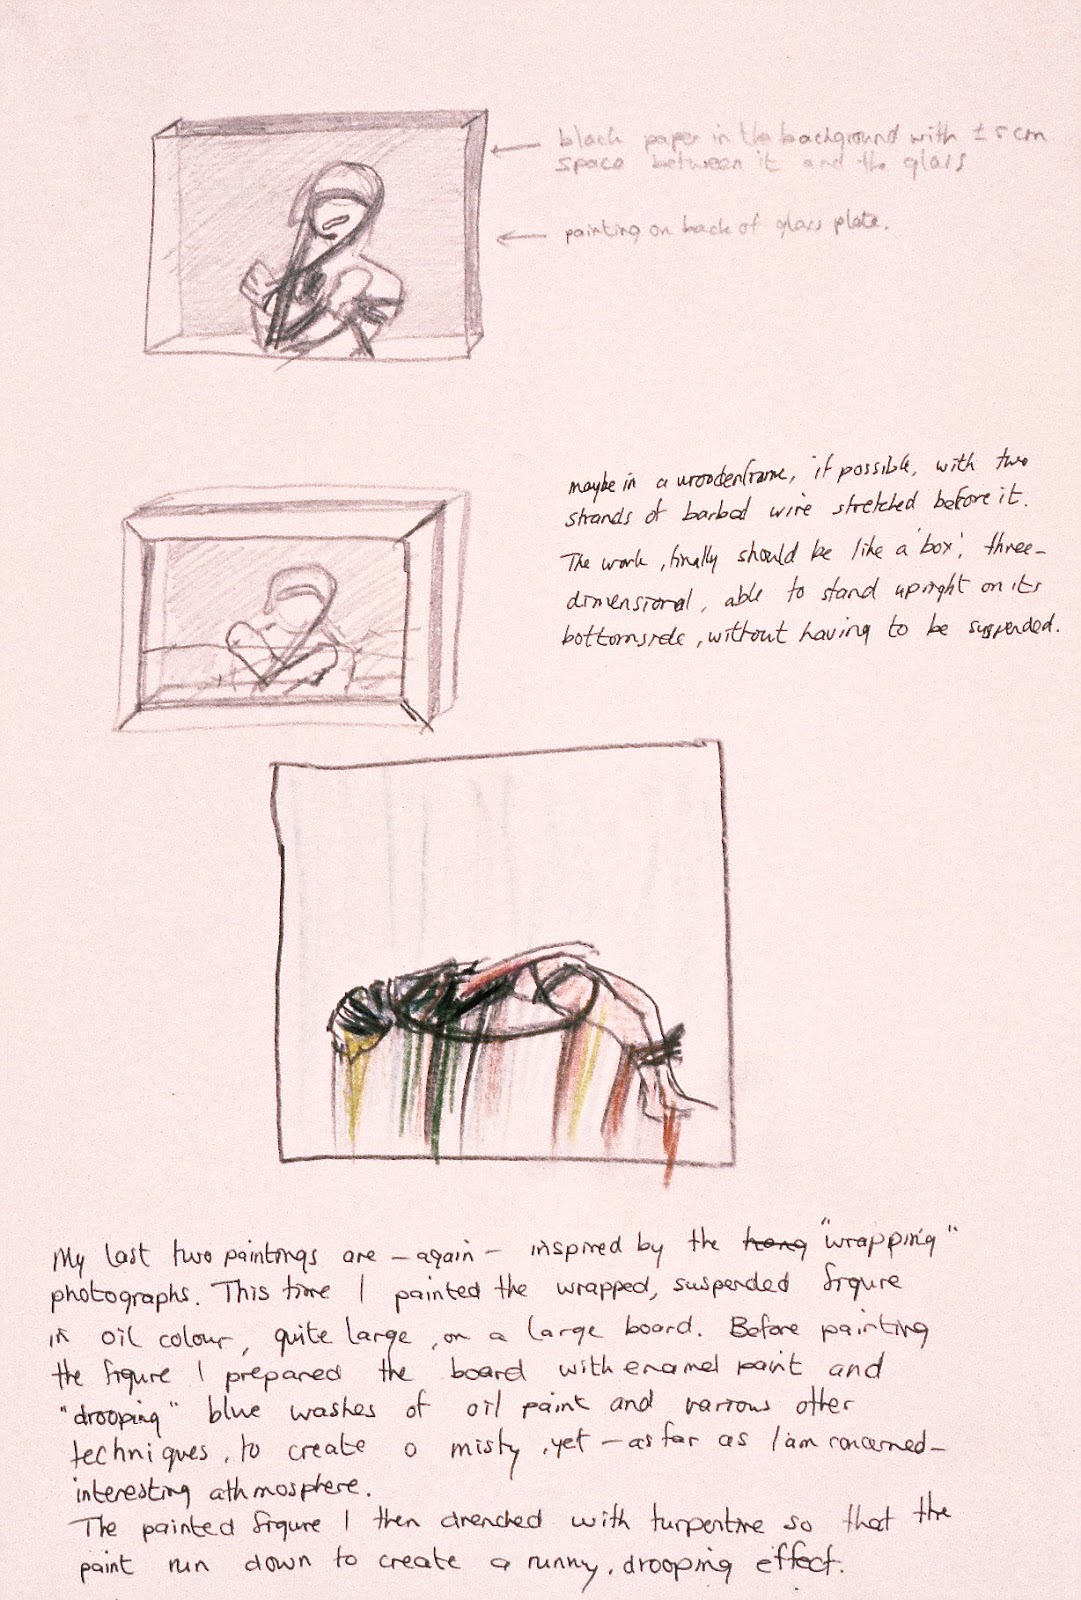 black paper in the background with ± 5 cm
space between it and the glass
painting on back of glass plate.
maybe in a woodenframe, if possible, with two
strands of barbed wire stretched before it.
The work, finally should be like a 'box', three-
dimensional, able to stand upright on its
bottomside, without having to be suspended.
My last two paintings are - again - inspired by the hang "wrapping"
photographs. This time I painted the wrapped, suspended figure
in oil colour, quite large, on a large board. Before painting
the figure I prepared the board with enamel paint and
"drooping" blue washes of oil paint and various other
techniques, to create a misty, yet - as far as I am concerned -
interesting athmosphere.
The painted figure I then drenched with turpentine so that the
paint run down to create a runny, drooping effect.